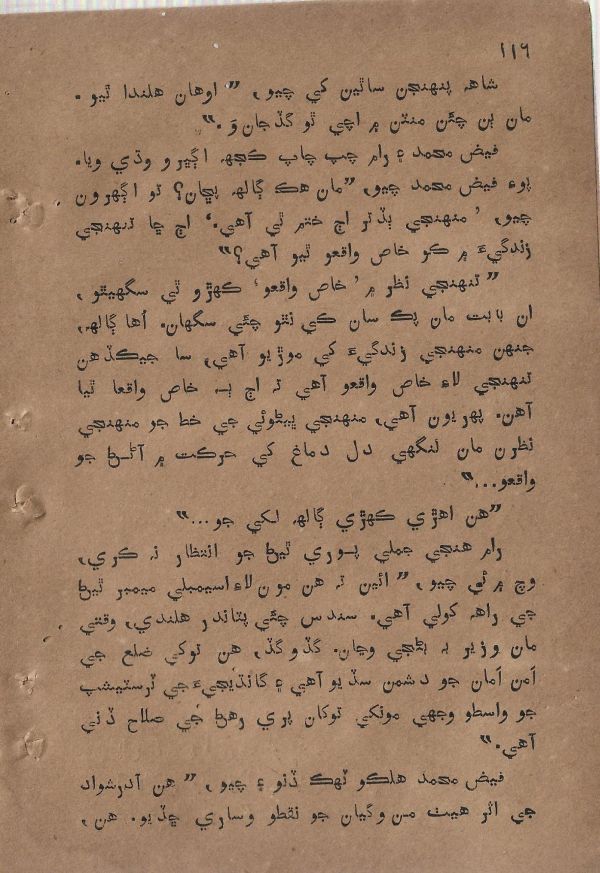 ١١٦
شاهه پنهنجن ساٿين کي چيو، ”اوهان هلندا ٿيو.
مان ٻن چئن منٽن ۾ اچي ٿو گڏجانوَ.“
فيض محمد ۽ رام چپ چاپ ڪجهه اڳيرو وڌي ويا.
پوءِ فيض محمد چيو، ”مان هڪ ڳالهه پڇان؟ تو اڳهرون
چيو، ’منهنجي ٻڌتر اڄ ختم ٿي آهي.‘ اڄ ڇا تنهنجي
زندگيءَ ۾ ڪو خاص واقعو ٿيو آهي؟“
”تنهنجي نظر ۾ ’خاص واقعو‘ ڪهڙو ٿي سگهيٿو،
ان بابت مان پڪ سان ڪي نٿو چئي سگهان. اُها ڳالهه،
جنهن منهنجي زندگيءَ کي موڙيو آهي، سا جيڪڏهن
تنهنجي لاءِ خاص واقعو آهي ته اڄ ٻه خاص واقعا ٿيا
آهن. پهريون آهي، منهنجي ڀيڻوئي جي خط جو منهنجي
نظرن مان لنگهي دل دماغ کي حرڪت ۾ آڻڻ جو
واقعو...“
”هن اهڙي ڪهڙي ڳالهه لکي جو...“
رام هنجي جملي پوري ٿيڻ جو انتظار نه ڪري،
وچ ۾ ئي چيو، ”ائين ته هن مون لاءِ اسيمبلي ميمبر ٿيڻ
جي راهه کولي آهي. سندس چئي پٽاندر هلندي، وقتي
مان وزير به بڻجي وڃان. گڏوگڏ، هن توکي ضلع جي
اَمن اَمان جو دشمن سڏيو آهي ۽ گانڌيجيءَ جي ٽرسٽيشپ
جو واسطو وجهي مونکي توکان پري رهڻ جي صلاح ڏني
آهي.“
فيض محمد هلڪو ٽهڪ ڏنو ۽ چيو، ”هن آدرشواد
جي اثر هيٺ من وگيان جو نقطو وساري ڇڏيو. هن،